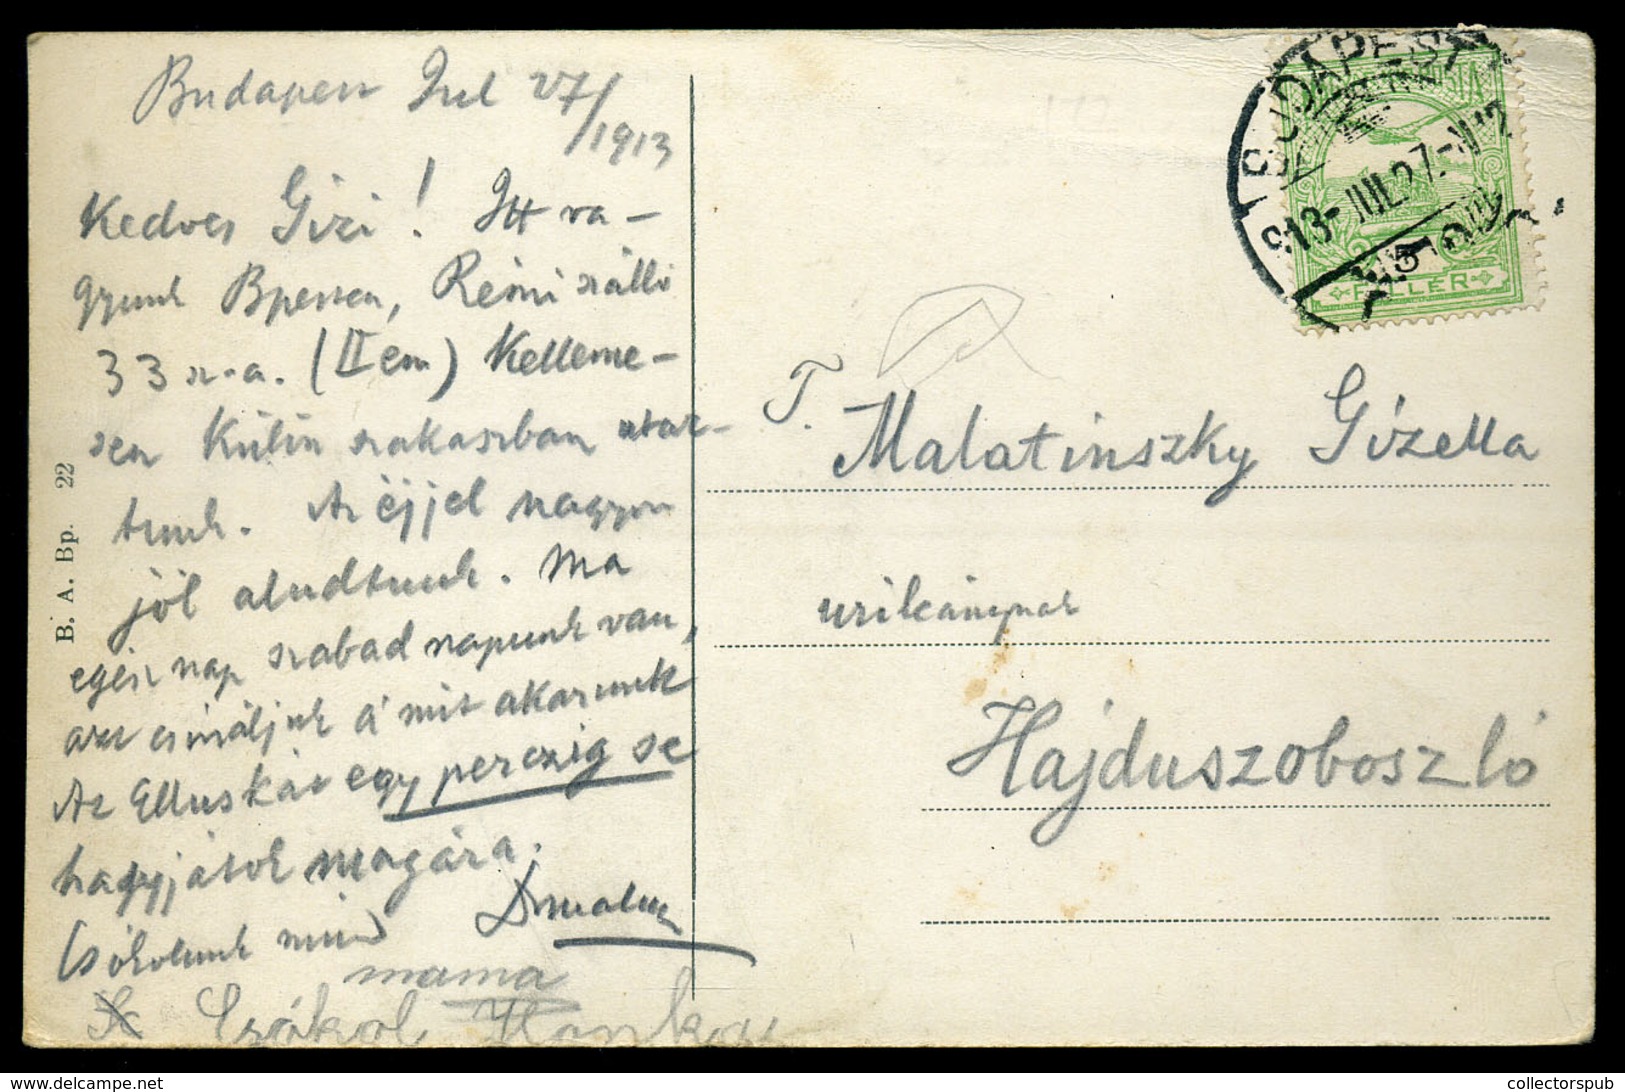 Budapest Jul 27/
1913
Kedves Gizi! Itt va-
gyunk Bpesten, Rémi szálló
33 sz.a. (II em) Kelleme-
sen külön szakaszban utaz-
tunk. Az éjjel nagyon
jól aludtunk. Ma
egész nap szabad napunk van,
azt csináljuk a mit akarunk
Az Elluskát egy perczig se
hagyjátok magára.
Csókolunk mind
mama
Csókol
B. A. Bp. 22
BUDAPEST
913-JUL.27.-N12
POSTA
FILLÉR
T.
Malatinszky Gizella
urileánynak
Hajduszoboszló
collectorspub